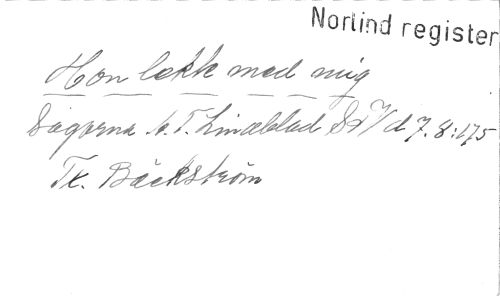 Norlind register
Hon lekk med mig
Sågorna k. T. Lindblad Sv 7. 8:175
Tk. Bäckström